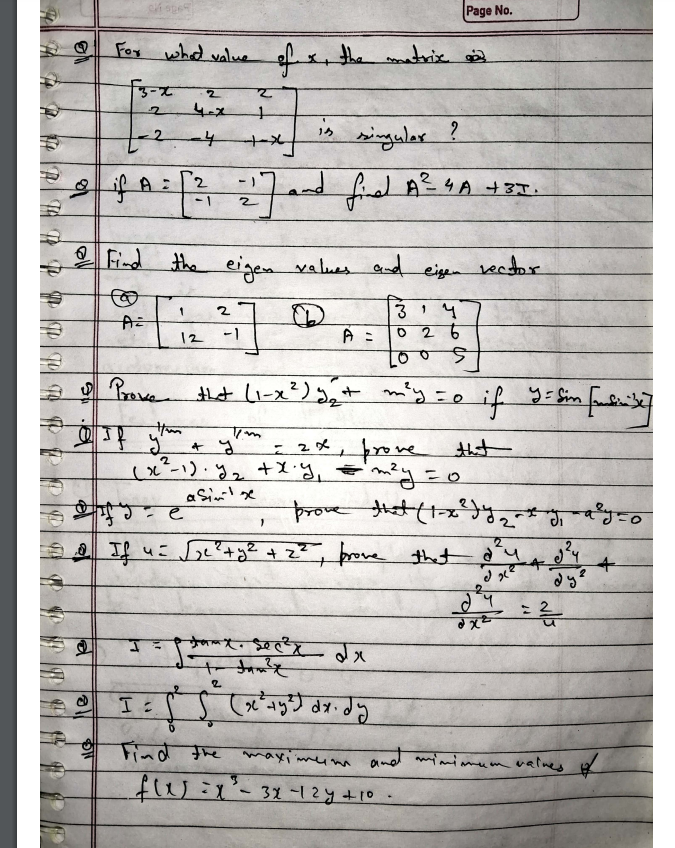 Page No.
Q For what value of x, the matrix
[3-x 2 2
2 4-x 1
-2 -4 -1-x] is singular ?
Q if A = [2 -1
-1 2] and find A² - 4A + 3I.
Q Find the eigen values and eigen vector
(a) A = [1 2
12 -1]
(b) A = [3 1 4
0 2 6
0 0 5]
Q Prove that (1-x²) y₂ + m²y = 0 if y = sin [msin⁻¹x]
Q If y^1/m + y^1/m = 2x, prove that
(x²-1). y₂ + x.y₁ - m²y = 0
Q If y = e^a sin⁻¹ x, prove that (1-x²)y₂ - x y₁ - a²y = 0
Q If u = √x² + y² + z², prove that ∂²u/∂x² + ∂²u/∂y² +
∂²u/∂x² = 2/u
Q I = ∫ tanx. sec²x / 1 - tan²x dx
Q I = ∫₀² ∫₀² (x² + y²) dx. dy
Q Find the maximum and minimum values of
f(x) = x³ - 3x - 12y + 10.